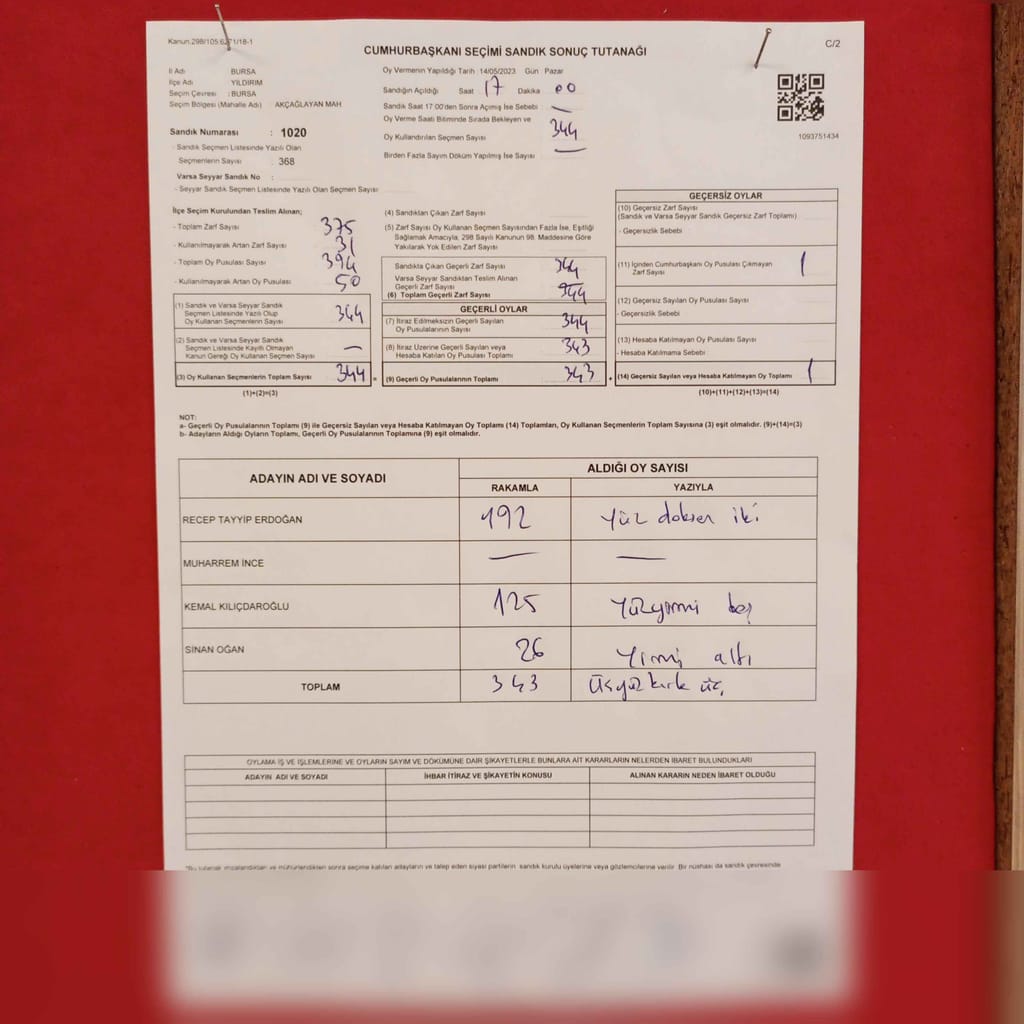 Kanun.298/105:6271/18-1
C/2
CUMHURBAŞKANI SEÇİMİ SANDIK SONUÇ TUTANAĞI
İl Adı BURSA
İlçe Adı YILDIRIM
Seçim Çevresi : BURSA
Seçim Bölgesi (Mahalle Adı) AKÇAĞLAYAN MAH
Sandık Numarası : 1020
- Sandık Seçmen Listesinde Yazılı Olan
Seçmenlerin Sayısı : 368
Varsa Seyyar Sandık No :
- Seyyar Sandık Seçmen Listesinde Yazılı Olan Seçmen Sayısı
Oy Vermenin Yapıldığı Tarih 14/05/2023 Gün Pazar
Sandığın Açıldığı Saat 17 Dakika 00
Sandık Saat 17:00'den Sonra Açımış İse Sebebi —
Oy Verme Saati Bitiminde Sırada Bekleyen ve
Oy Kullandırılan Seçmen Sayısı 344
Birden Fazla Sayım Döküm Yapılmış İse Sayısı —
1093751434
İlçe Seçim Kurulundan Teslim Alınan;
- Toplam Zarf Sayısı 375
- Kullanılmayarak Artan Zarf Sayısı 31
- Toplam Oy Pusulası Sayısı 394
- Kullanılmayarak Artan Oy Pusulası 50
(1) Sandık ve Varsa Seyyar Sandık
Seçmen Listesinde Yazılı Olup
Oy Kullanan Seçmenlerin Sayısı 344
(2) Sandık ve Varsa Seyyar Sandık
Seçmen Listesinde Kayıtlı Olmayan
Kanun Gereği Oy Kullanan Seçmen Sayısı —
(3) Oy Kullanan Seçmenlerin Toplam Sayısı 344 =
(1)+(2)=(3)
(4) Sandıktan Çıkan Zarf Sayısı
(5) Zarf Sayısı Oy Kullanan Seçmen Sayısından Fazla İse, Eşitliği
Sağlamak Amacıyla, 298 Sayılı Kanunun 98. Maddesine Göre
Yakılarak Yok Edilen Zarf Sayısı
Sandıkta Çıkan Geçerli Zarf Sayısı 344
Varsa Seyyar Sandıktan Teslim Alınan
Geçerli Zarf Sayısı —
(6) Toplam Geçerli Zarf Sayısı 344
GEÇERLİ OYLAR
(7) İtiraz Edilmeksizin Geçerli Sayılan
Oy Pusulalarının Sayısı 344
(8) İtiraz Üzerine Geçerli Sayılan veya
Hesaba Katılan Oy Pusulası Toplamı 343
(9) Geçerli Oy Pusulalarının Toplamı 343 +
GEÇERSİZ OYLAR
(10) Geçersiz Zarf Sayısı
(Sandık ve Varsa Seyyar Sandık Geçersiz Zarf Toplamı)
- Geçersizlik Sebebi
(11) İçinden Cumhurbaşkanı Oy Pusulası Çıkmayan
Zarf Sayısı 1
(12) Geçersiz Sayılan Oy Pusulası Sayısı
- Geçersizlik Sebebi
(13) Hesaba Katılmayan Oy Pusulası Sayısı
- Hesaba Katılmama Sebebi
(14) Geçersiz Sayılan veya Hesaba Katılmayan Oy Toplamı 1
(10)+(11)+(12)+(13)=(14)
NOT:
a- Geçerli Oy Pusulalarının Toplamı (9) ile Geçersiz Sayılan veya Hesaba Katılmayan Oy Toplamı (14) Toplamları, Oy Kullanan Seçmenlerin Toplam Sayısına (3) eşit olmalıdır. (9)+(14)=(3)
b- Adayların Aldığı Oyların Toplamı, Geçerli Oy Pusulalarının Toplamına (9) eşit olmalıdır.
ADAYIN ADI VE SOYADI ALDIĞI OY SAYISI
RAKAMLA YAZIYLA
RECEP TAYYİP ERDOĞAN 192 Yüz doksen iki
MUHARREM İNCE — —
KEMAL KILIÇDAROĞLU 125 Yüzyirmi beş
SİNAN OĞAN 26 Yirmi altı
TOPLAM 343 Üçyüzkırk üç
OYLAMA İŞ VE İŞLEMLERİNE VE OYLARIN SAYIM VE DÖKÜMÜNE DAİR ŞİKAYETLERLE BUNLARA AİT KARARLARIN NELERDEN İBARET BULUNDUKLARI
ADAYIN ADI VE SOYADI İHBAR İTİRAZ VE ŞİKAYETİN KONUSU ALINAN KARARIN NEDEN İBARET OLDUĞU
*Bu tutanak imzalandıktan ve mühürlendikten sonra seçime katılan adayların ve talep eden siyasi partilerin sandık kurulu üyelerine veya gözlemcilerine verilir. Bir nüshası da sandık çevresinde